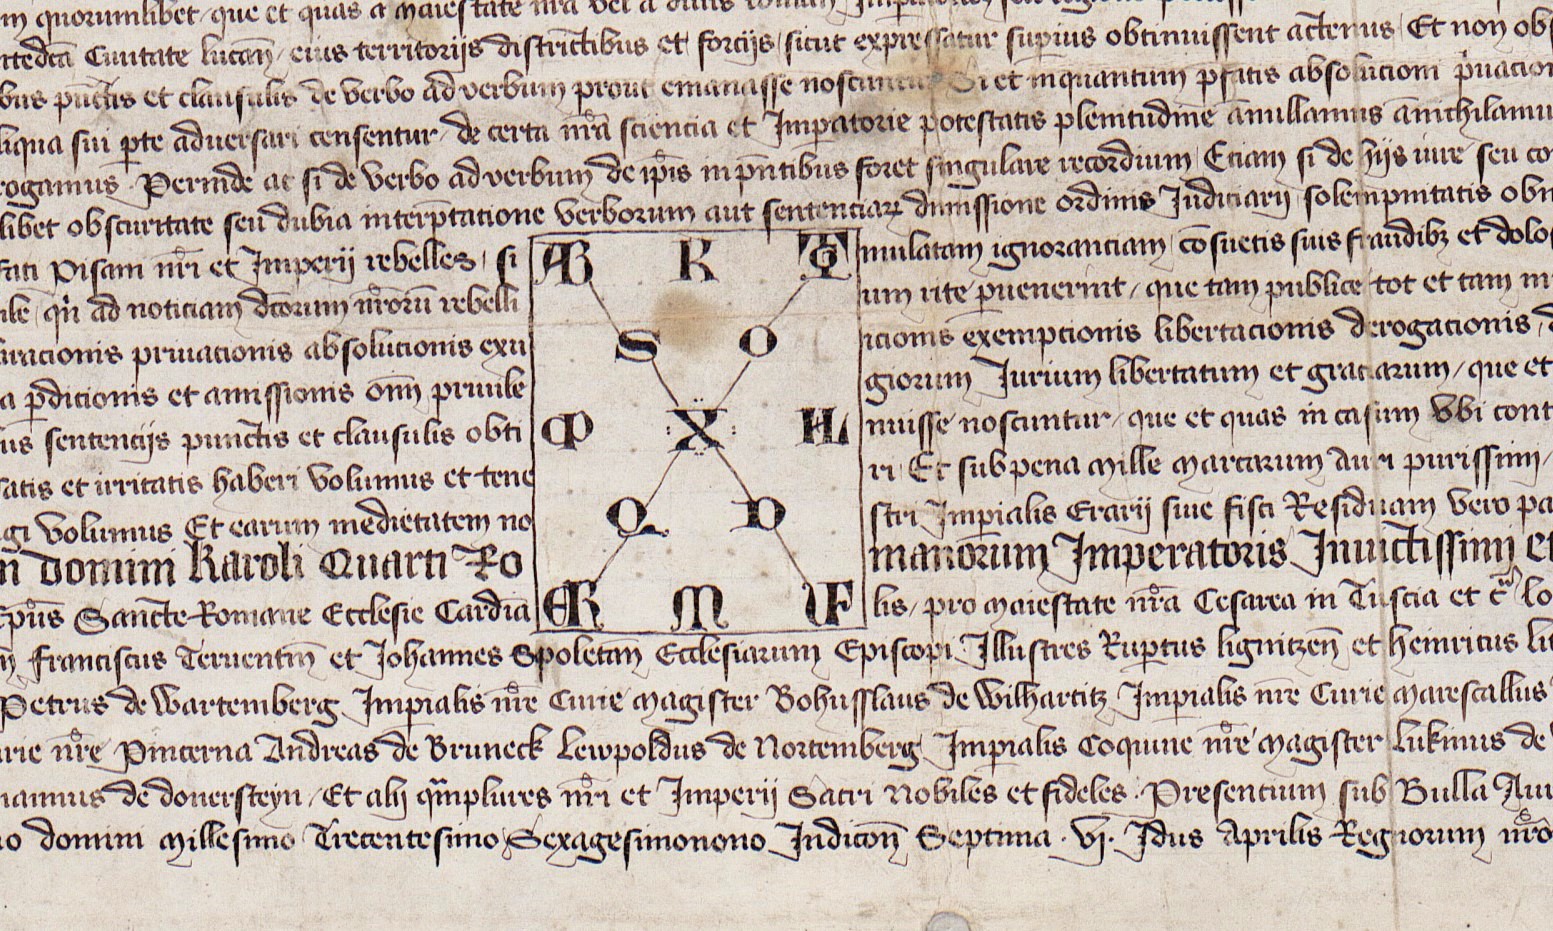 quorumlibet que et quas a Maiestate nr̄a vel a diuis
Ciuitate lucan̄ eius territorijs districtibus et forcijs sicut expressatur superius obtinuissent actenus Et non obs
bus punctis et clausulis de verbo ad verbum prout emanasse noscuntur Si et inquantum p̄fatis absolucioni p̄uacion
liqua sui p̱te aduersari censentur de certa nr̄a sciencia et Imp̱atorie potestatis plenitudine ānullamus ānichilamu
rogamus Perinde ac si de verbo ad verbum de ip̄is in p̄ntibus foret singulare recordium Etiam si de hijs iure seu co
libet obscuritate seu dubia interp̄tatione verborum aut sentenciaꝝ dimissione ordinis Judiciarij solempnitatis obm
fati Pisani nr̄i et Imperij rebelles si mulatam ignoranciam consuetis suis fraudibꝫ et dolos
ad noticiam dc̄orum nr̄orū rebelli um rite p̱uenerint que tam publice tot et tam
aracionis priuacionis absolucionis exu icionis exempcionis libertacionis derogacionis
a p̱dicionis et amissionis om̄ priuile giorum Jurium libertatum et graciarum que et
sentencijs punctis et clausulis obti nuisse noscuntur que et quas in casum vbi cont
atis et irritatis haberi volumus et tene ri Et sub pena Mille Marcarum Auri purissimi
gi volumus Et earum medietatem no stri Imp̱ialis Erarij siue fisci Residuam vero pa
domini Karoli Quarti Ro manorum Imperatoris Inuictissimi et
ep̄us Sancte Romane Ecclesie Cardīa lis pro Maiestate nr̄a Cesarea in Tuscia et
AB R T
S O
P X HL
Q D
ER M LF
Franciscus Teruentin̄ et Johannes Spoletan̄ Ecclesiarum Episcopi Illustres Rup̱tus lignitzen̄ et heinricus
Petrus de Wartemberg Imp̱ialis nr̄e Curie Magister Bohusslaus de Wilhartitz Imp̱ialis nr̄e Curie Marescallus
nr̄e Pincerna Andreas de Bruneck Lewpoldus de Nortemberg Imp̱ialis Coquine nr̄e Magister Lukinus de
de donersteyn Et alij qm̄plures nr̄i et Imperij Sacri Nobiles et fideles Presencium sub Bulla Aur
no domini Millesimo Trecentesimo Sexagesimonono Indicōn̄ Septima vj Idus Aprilis Regnorum nr̄o